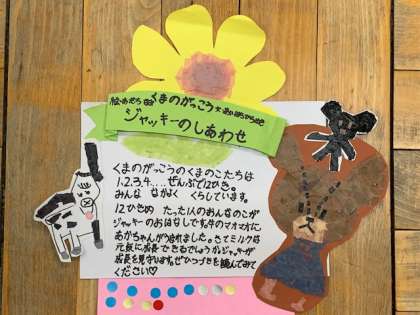 くまのがっこう
ジャッキーのしあわせ
くまのがっこうのくまのこたちは
1.2.3.4.... ぜんぶで12ひき。
みんな なかよく くらしています。
12ひきめ たった1人のおんなのこが
ジャッキーのおはなしです。牛のマオマオに
あかちゃんがうまれました。さてミルクは
元気に成長できるでしょうか。ジャッキーが
成長を見守ります。ぜひつづきを読んでみて
ください♡